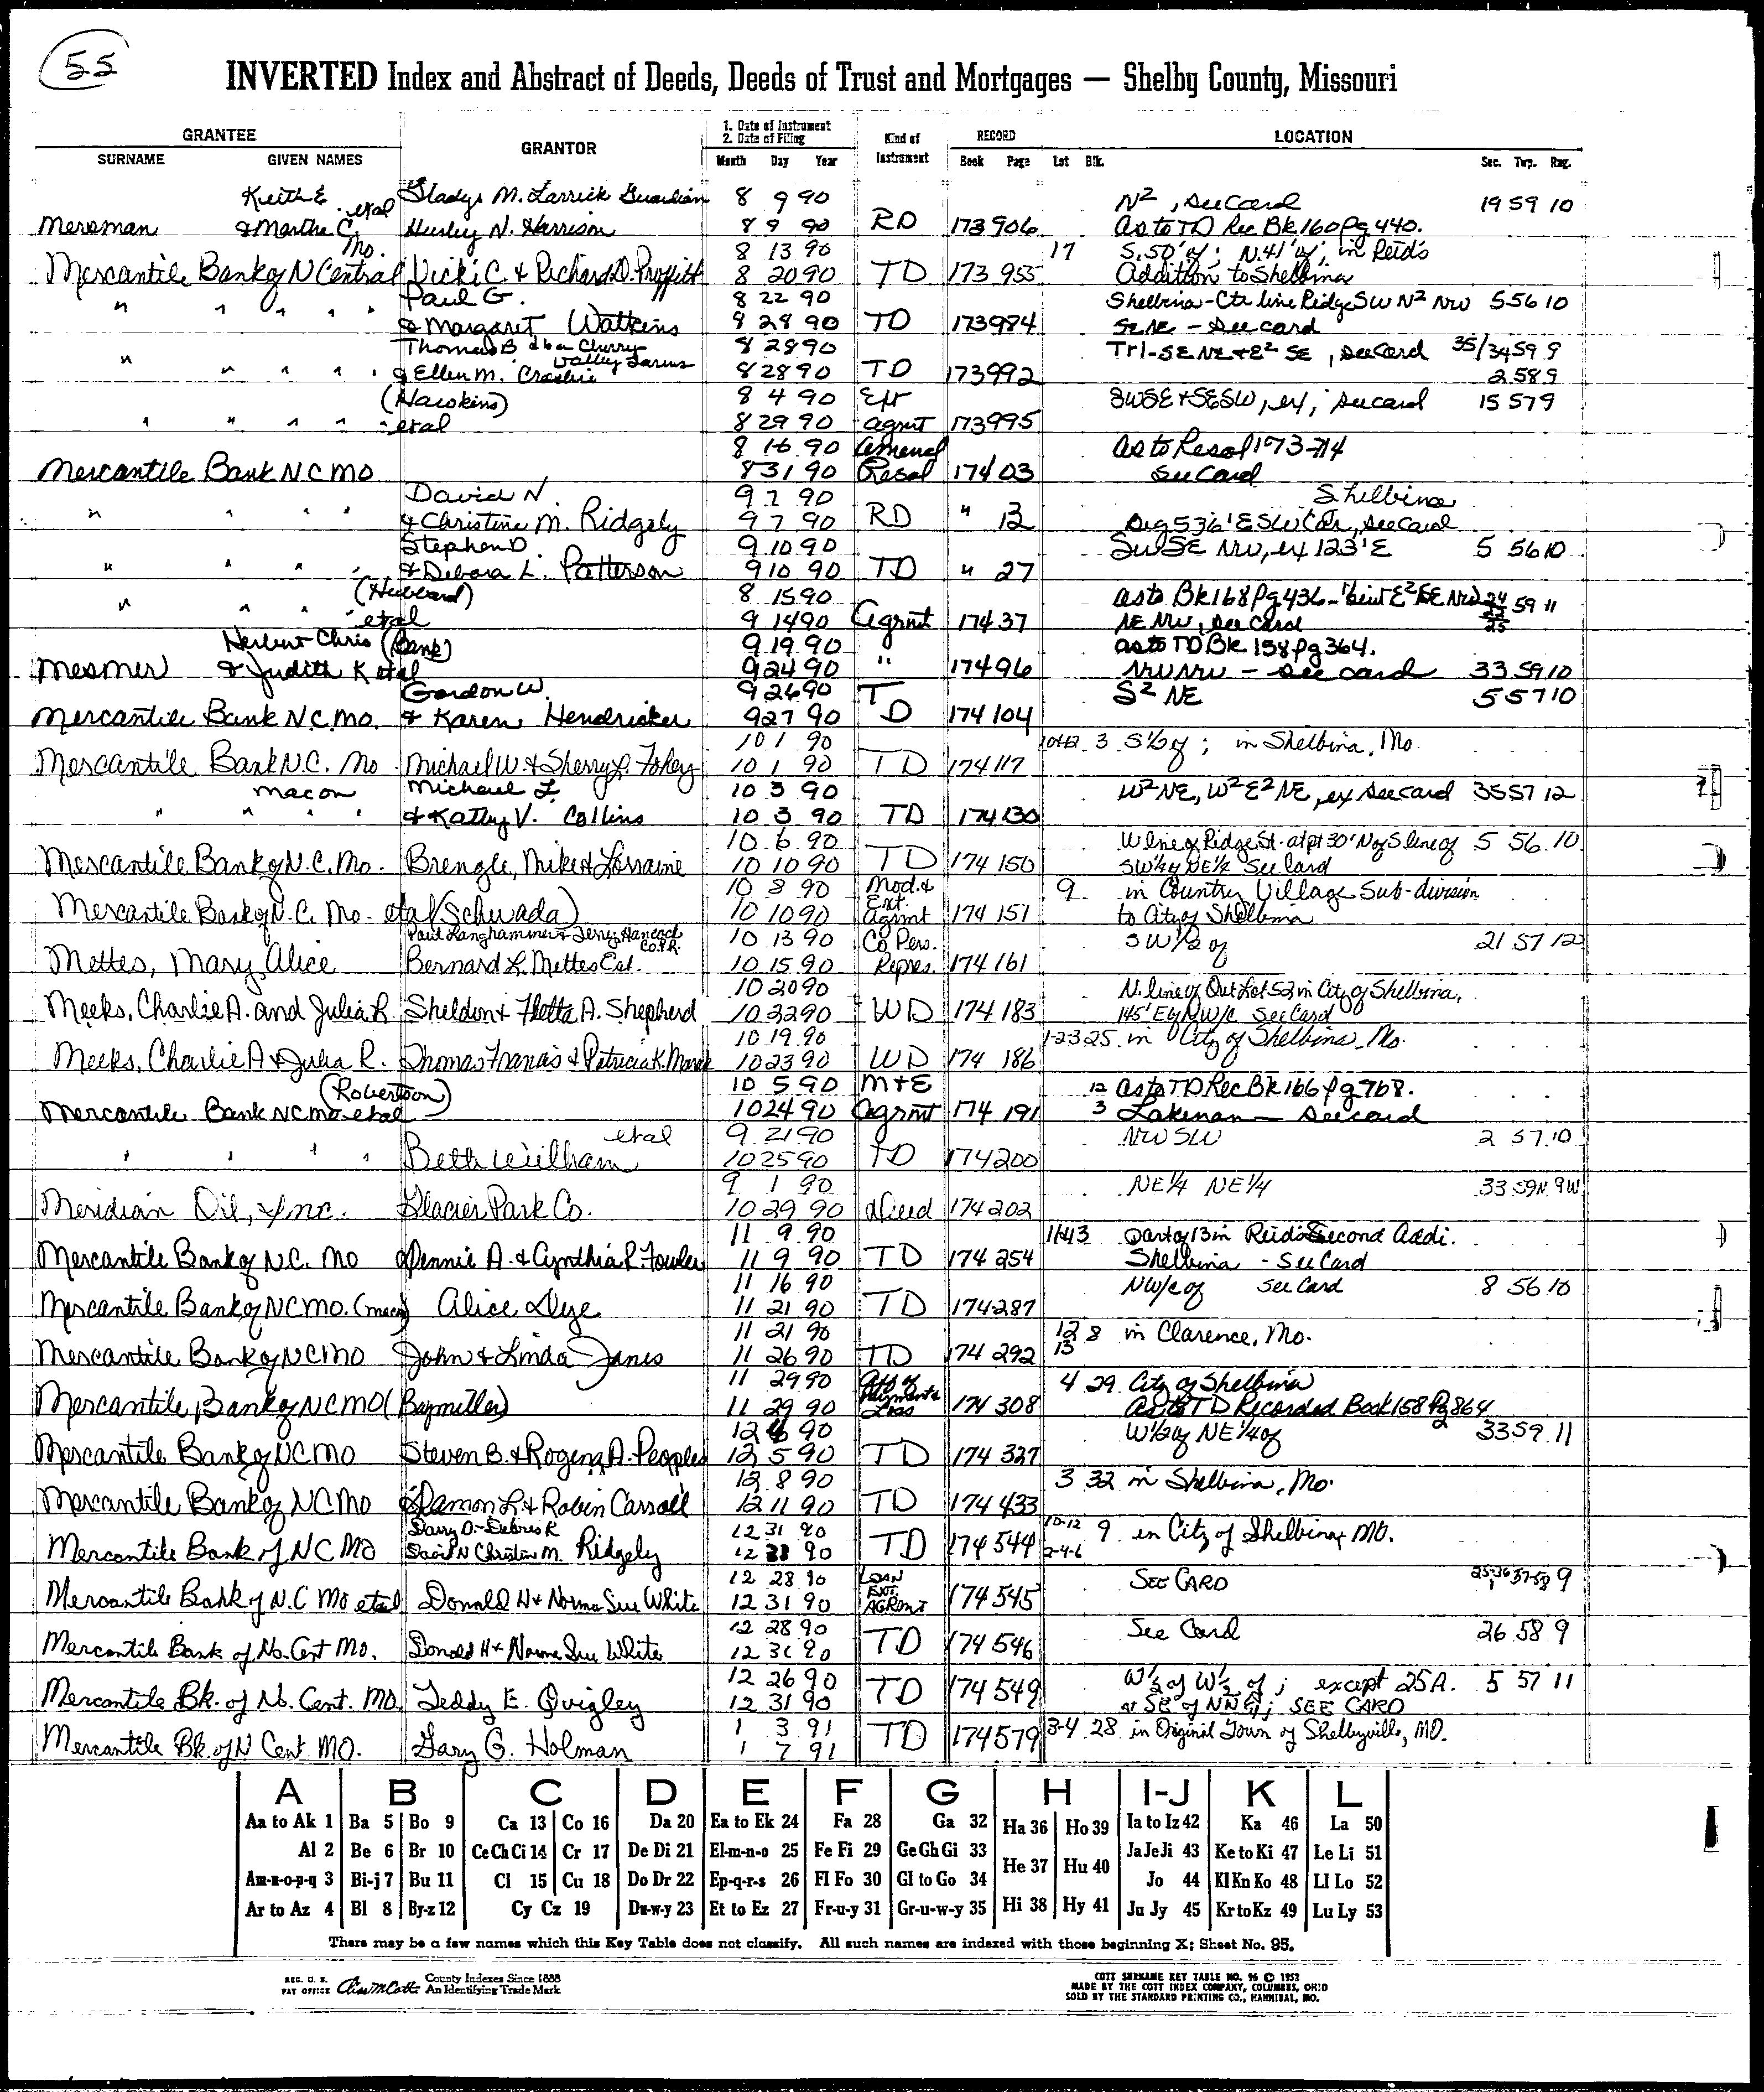 55
INVERTED Index and Abstract of Deeds, Deeds of Trust and Mortgages — Shelby County, Missouri
GRANTEE
SURNAME GIVEN NAMES
GRANTOR
1. Date of Instrument
2. Date of Filing
Month Day Year
Kind of Instrument
RECORD
Book Page
LOCATION
Lot Blk. Sec. Twp. Rng.
Keith E. etal Gladys M. Larrick Guardian 8 9 90 N², see card 19 59 10
Meroman & Martha C. Hurley N. Harrison 8 9 90 RD 173 906 as to TD Rec Bk 160 pg 440.
Mo. 8 13 90 17 S. 50' of; N. 41' of; in Reid's
Mercantile Bank of N Central Vicki C. & Richard D. Proffitt 8 20 90 TD 173 955 Addition to Shelbina
Paul G. 8 22 90 Shelbina-Ctr line Ridge SW N² NW 5 56 10
" " " " & Margaret Watkins 8 28 90 TD 173 984 SENE - see card
Thomas B dba Cherry Valley Farms 8 28 90 Tr1-SE NE & E² SE, see card 35/34 59 9
" " " " & Ellen M. Crosbie 8 28 90 TD 173 992 2 58 9
(Hawkins) 8 4 90 Ext SWSE & SESW, ex; see card 15 57 9
" " " " etal 8 29 90 agmt 173 995
8 16 90 Amend as to Resol 173-714
Mercantile Bank NC MO 8 31 90 Resol 174 03 see card
David N. 9 7 90 Shelbina
" " " " & Christine M. Ridgely 9 7 90 RD " 13 Beg 536' E SW Cor, see card
Stephen D. 9 10 90 SW SE NW, ex 123' E 5 56 10
" " " " & Debora L. Patterson 9 10 90 TD " 27
(Hubbard) 8 15 90 as to Bk 168 pg 436 - E² SE NW 24 59 11
" " " " etal 9 14 90 Agmt 174 37 NE NW, see card 25
Herbert Chris (Bank) 9 19 90 as to TD Bk 158 pg 364.
Mesmer & Judith K etal 9 24 90 " 174 96 NW NW - see card 33 59 10
Gordon W. 9 26 90 S² NE 5 57 10
Mercantile Bank N.C. MO. & Karen Hendricker 9 27 90 TD 174 104
10 1 90 3 S½ of; in Shelbina, Mo.
Mercantile Bank N.C. Mo. Michael W. & Sherry L. Fohey 10 1 90 TD 174 117
macon Michael L. 10 3 90 W² NE, W² E² NE, ex see card 35 57 12
" " " " & Kathy V. Collins 10 3 90 TD 174 130
10 6 90 W line of Ridge St. at pt 30' N of S line of 5 56 10
Mercantile Bank of N.C. Mo. Brengle, Mike & Lorraine 10 10 90 TD 174 150 SW¼ of NE¼ See Card
10 8 90 Mod. & Ext. 9 in Country Village Sub-division
Mercantile Bank of N.C. Mo. etal (Schwada) 10 10 90 Agrmt 174 151 to City of Shelbina
Paul Langhammer & Terry Hancock Co. P.R. 10 13 90 Co Pers. SW½ of 21 57 12
Mettes, Mary Alice Bernard L. Mettes Est. 10 15 90 Repres. 174 161
10 20 90 N. line of Out Lot 52 in City of Shelbina,
Meeks, Charlie A. and Julia R. Sheldon & Fletta A. Shepherd 10 22 90 WD 174 183 145' E of NW/c See Card
10 19 90 1-2-3 25 in City of Shelbina, Mo.
Meeks, Charlie A & Julia R. Thomas Francis & Patricia K. Marek 10 23 90 WD 174 186
(Robertson) 10 5 90 M & E 12 as to TD Rec Bk 166 pg 768.
Mercantile Bank NC MO etal 10 24 90 agmt 174 191 3 Lakenan - see card
etal 9 21 90 NW SW 2 57 10
" " " " Beth William 10 25 90 TD 174 200
9 1 90 NE¼ NE¼ 33 59N 9W
Meridian Oil, Inc. Glacier Park Co. 10 29 90 Deed 174 202
11 9 90 Part of 13 in Reid's Second Addi.
Mercantile Bank of N.C. MO Dennis A. & Cynthia R. Fowler 11 9 90 TD 174 254 Shelbina - See Card
11 16 90 NW/c of See Card 8 56 10
Mercantile Bank of NC MO. (macon) Alice Dye 11 21 90 TD 174 287
11 21 90 12 8 in Clarence, Mo.
Mercantile Bank of NC MO John & Linda Janes 11 26 90 TD 174 292 13
11 29 90 4 29 City of Shelbina
Mercantile, Bank of NC MO (Baymiller) 11 29 90 174 308 As to TD Recorded Book 158 Pg 864
12 4 90 W½ of NE¼ of 2 33 59 11
Mercantile Bank of NC MO Steven B. & Rogena A. Peoples 12 5 90 TD 174 327
12 8 90 3 32 in Shelbina, Mo.
Mercantile Bank of NC MO Damon L. & Robin Carroll 12 11 90 TD 174 433
Darry D. - Debra K 12 31 90 10-12 9 in City of Shelbina, MO.
Mercantile Bank of NC MO David N Christine M. Ridgely 12 31 90 TD 174 544 2-4-6
12 28 90 LOAN EXT. SEE CARD 25-36 57-58 9
Mercantile Bank of N.C MO etal Donald H & Norma Sue White 12 31 90 AGRMNT 174 545 1
12 28 90 See Card 26 58 9
Mercantile Bank of No. Cent MO. Donald H & Norma Sue White 12 31 90 TD 174 546
12 26 90 W½ of W½ of; except 25A. 5 57 11
Mercantile Bk. of No. Cent. MO. Teddy E. Quigley 12 31 90 TD 174 549 SEE CARD
1 3 91 3-4 28 in Original Town of Shelbyville, MO.
Mercantile Bk. of N Cent. MO. Gary G. Holman 1 7 91 TD 174 579
A B C D E F G H I-J K L
Aa to Ak 1 Ba 5 Bo 9 Ca 13 Co 16 Da 20 Ea to Ek 24 Fa 28 Ga 32 Ha 36 Ho 39 Ia to Iz 42 Ka 46 La 50
Al 2 Be 6 Br 10 Ce Ch Ci 14 Cr 17 De Di 21 El-m-n-o 25 Fe Fi 29 Ge Gh Gi 33 He 37 Hu 40 Ja Je Ji 43 Ke to Ki 47 Le Li 51
Am-n-o-p-q 3 Bi-j 7 Bu 11 Cl 15 Cu 18 Do Dr 22 Ep-q-r-s 26 Fl Fo 30 Gl to Go 34 Jo 44 Kl Kn Ko 48 Ll Lo 52
Ar to Az 4 Bl 8 By-z 12 Cy Cz 19 Du-w-y 23 Et to Ez 27 Fr-u-y 31 Gr-u-w-y 35 Hi 38 Hy 41 Ju Jy 45 Kr to Kz 49 Lu Ly 53
There may be a few names which this Key Table does not classify. All such names are indexed with those beginning X; Sheet No. 95.
REG. U. S. PAT OFFICE County Indexes Since 1888 An Identifying Trade Mark
COTT SURNAME KEY TABLE NO. 96 © 1952
MADE BY THE COTT INDEX COMPANY, COLUMBUS, OHIO
SOLD BY THE STANDARD PRINTING CO., HANNIBAL, MO.